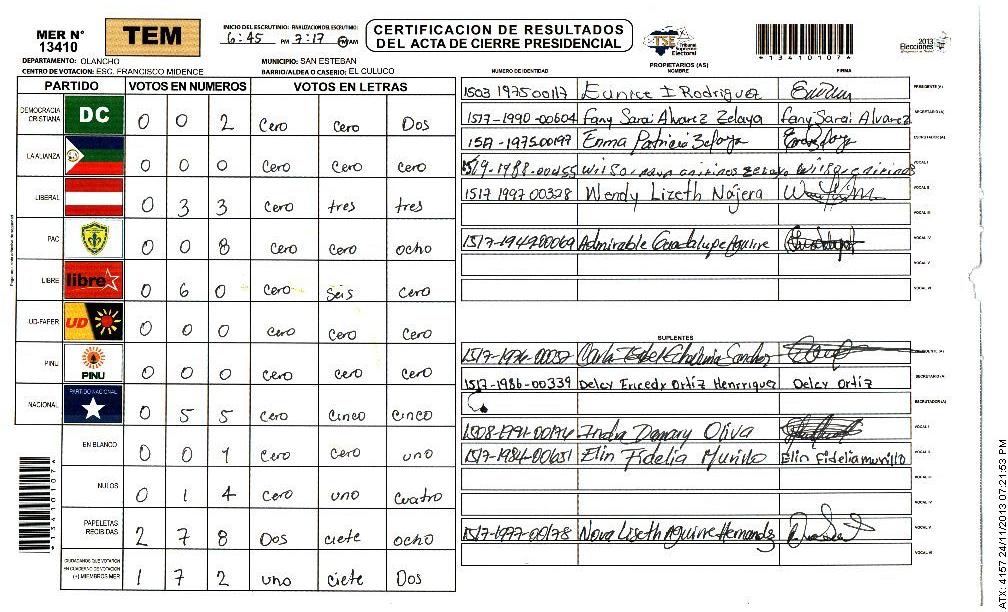 MER N° 13410
TEM
INICIO DEL ESCRUTINIO: 6:45 PM FINALIZACION DEL ESCRUTINIO: 7:17 PM AM
CERTIFICACION DE RESULTADOS
DEL ACTA DE CIERRE PRESIDENCIAL
TSE Tribunal Supremo Electoral
*1341010 7*
2013 Elecciones
DEPARTAMENTO: OLANCHO
MUNICIPIO: SAN ESTEBAN
CENTRO DE VOTACION: ESC. FRANCISCO MIDENCE
BARRIO/ALDEA O CASERIO: EL CULUCO
PARTIDO VOTOS EN NUMEROS VOTOS EN LETRAS
DEMOCRACIA CRISTIANA DC 0 0 2 Cero Cero Dos
LA ALIANZA 0 0 0 Cero Cero Cero
LIBERAL 0 3 3 Cero tres tres
PAC 0 0 8 Cero Cero ocho
LIBRE libre 0 6 0 Cero Seis Cero
UD-FAPER UD 0 0 0 Cero Cero Cero
PINU PINU 0 0 0 Cero Cero Cero
NACIONAL PARTIDO NACIONAL 0 5 5 Cero Cinco Cinco
EN BLANCO 0 0 1 Cero Cero uno
NULOS 0 1 4 Cero uno Cuatro
PAPELETAS RECIBIDAS 2 7 8 Dos ciete ocho
CIUDADANOS QUE VOTARON EN CUADERNO DE VOTACION (+) MIEMBROS MER 1 7 2 uno ciete Dos
PROPIETARIOS (AS)
NUMERO DE IDENTIDAD NOMBRE FIRMA
1503 1975 00117 Eunice I Rodriguez PRESIDENTE (A)
1517-1990-00604 Fany Sarai Alvarez Zelaya Fany Sarai Alvarez SECRETARIO (A)
Enma Patricia Zelaya ESCRUTADOR (A)
VOCAL I
1517 1997 00328 Wendy Lizeth Najera VOCAL II
VOCAL III
Admirable Guadalupe Aguirre VOCAL IV
VOCAL V
VOCAL VI
SUPLENTES
1517-1986-00339 Delcy Ericedy Ortíz Henrriquez Delcy Ortíz SECRETARIO (A)
ESCRUTADOR (A)
Indra Damary Oliva VOCAL I
1517-1984-00651 Elin Fidelia Murillo Elin Fidelia murillo VOCAL II
VOCAL III
VOCAL IV
Liseth Aguirre Hernandz VOCAL V
VOCAL VI
ATX: 4157 24/11/2013 07:21:53 PM